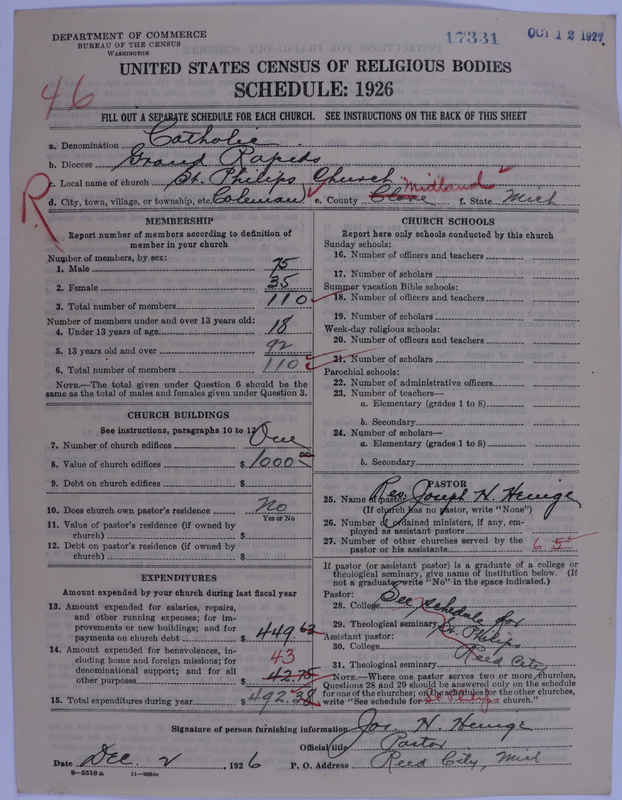 DEPARTMENT OF COMMERCE
BUREAU OF THE CENSUS
WASHINGTON
17331
OCT 12 1927
UNITED STATES CENSUS OF RELIGIOUS BODIES
SCHEDULE: 1926
46
FILL OUT A SEPARATE SCHEDULE FOR EACH CHURCH. SEE INSTRUCTIONS ON THE BACK OF THIS SHEET
a. Denomination Catholic
b. Diocese Grand Rapids
c. Local name of church St. Philips Church
R
d. City, town, village, or township, etc. Coleman e. County Clare Midland f. State Mich
MEMBERSHIP
Report number of members according to definition of
member in your church
Number of members, by sex:
1. Male 75
2. Female 35
3. Total number of members 110
Number of members under and over 13 years old:
4. Under 13 years of age 18
5. 13 years old and over 92
6. Total number of members 110
NOTE.—The total given under Question 6 should be the
same as the total of males and females given under Question 3.
CHURCH BUILDINGS
See instructions, paragraphs 10 to 12
7. Number of church edifices One
8. Value of church edifices $1000.00
9. Debt on church edifices $
10. Does church own pastor's residence No
Yes or No
11. Value of pastor's residence (if owned by
church) $
12. Debt on pastor's residence (if owned by
church) $
EXPENDITURES
Amount expended by your church during last fiscal year
13. Amount expended for salaries, repairs,
and other running expenses; for im-
provements or new buildings; and for
payments on church debt $449.63
14. Amount expended for benevolences, in-
cluding home and foreign missions; for
denominational support; and for all
other purposes $42.75
43
15. Total expenditures during year $492.38
CHURCH SCHOOLS
Report here only schools conducted by this church
Sunday schools:
16. Number of officers and teachers
17. Number of scholars
Summer vacation Bible schools:
18. Number of officers and teachers
19. Number of scholars
Week-day religious schools:
20. Number of officers and teachers
21. Number of scholars
Parochial schools:
22. Number of administrative officers
23. Number of teachers—
a. Elementary (grades 1 to 8)
b. Secondary
24. Number of scholars—
a. Elementary (grades 1 to 8)
b. Secondary
PASTOR
25. Name of pastor Rev. Joseph H. Heinge
(If church has no pastor, write "None")
26. Number of ordained ministers, if any, em-
ployed as assistant pastors
27. Number of other churches served by the
pastor or his assistants 6 5
If pastor (or assistant pastor) is a graduate of a college or
theological seminary, give name of institution below. (If
not a graduate, write "No" in the space indicated.)
Pastor:
28. College See schedule for
29. Theological seminary St. Philips
Assistant pastor:
30. College Reed City
31. Theological seminary
NOTE.—Where one pastor serves two or more churches,
Questions 28 and 29 should be answered only on the schedule
for one of the churches; on the schedules for the other churches,
write "See schedule for St Philips church."
Signature of person furnishing information Jos. H. Heinge
Official title Pastor
Date Dec 2, 1926 P. O. Address Reed City, Mich
8—5518 a